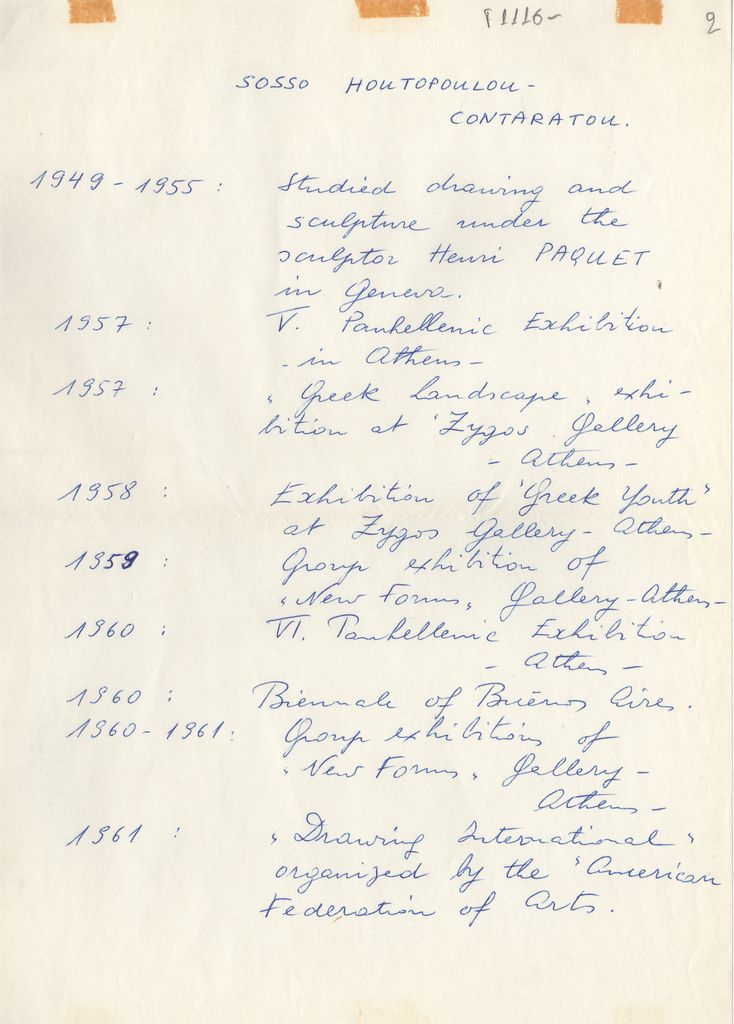 1116-
2
SOSSO HOUTOPOULOU-
CONTARATOU.
1949-1955: Studied drawing and
sculpture under the
sculptor Henri PAQUET
in Geneva.
1957: V. Panhellenic Exhibition
- in Athens -
1957: "Greek Landscape" exhi-
bition at "Zygos" Gallery
- Athens -
1958: Exhibition of "Greek Youth"
at Zygos Gallery - Athens -
1959: Group exhibition of
"New Forms" Gallery - Athens -
1960: VI. Panhellenic Exhibition
- Athens -
1960: Biennale of Buenos Aires.
1960-1961: Group exhibitions of
"New Forms" Gallery -
Athens -
1961: "Drawing International"
organized by the "American
Federation of Arts.